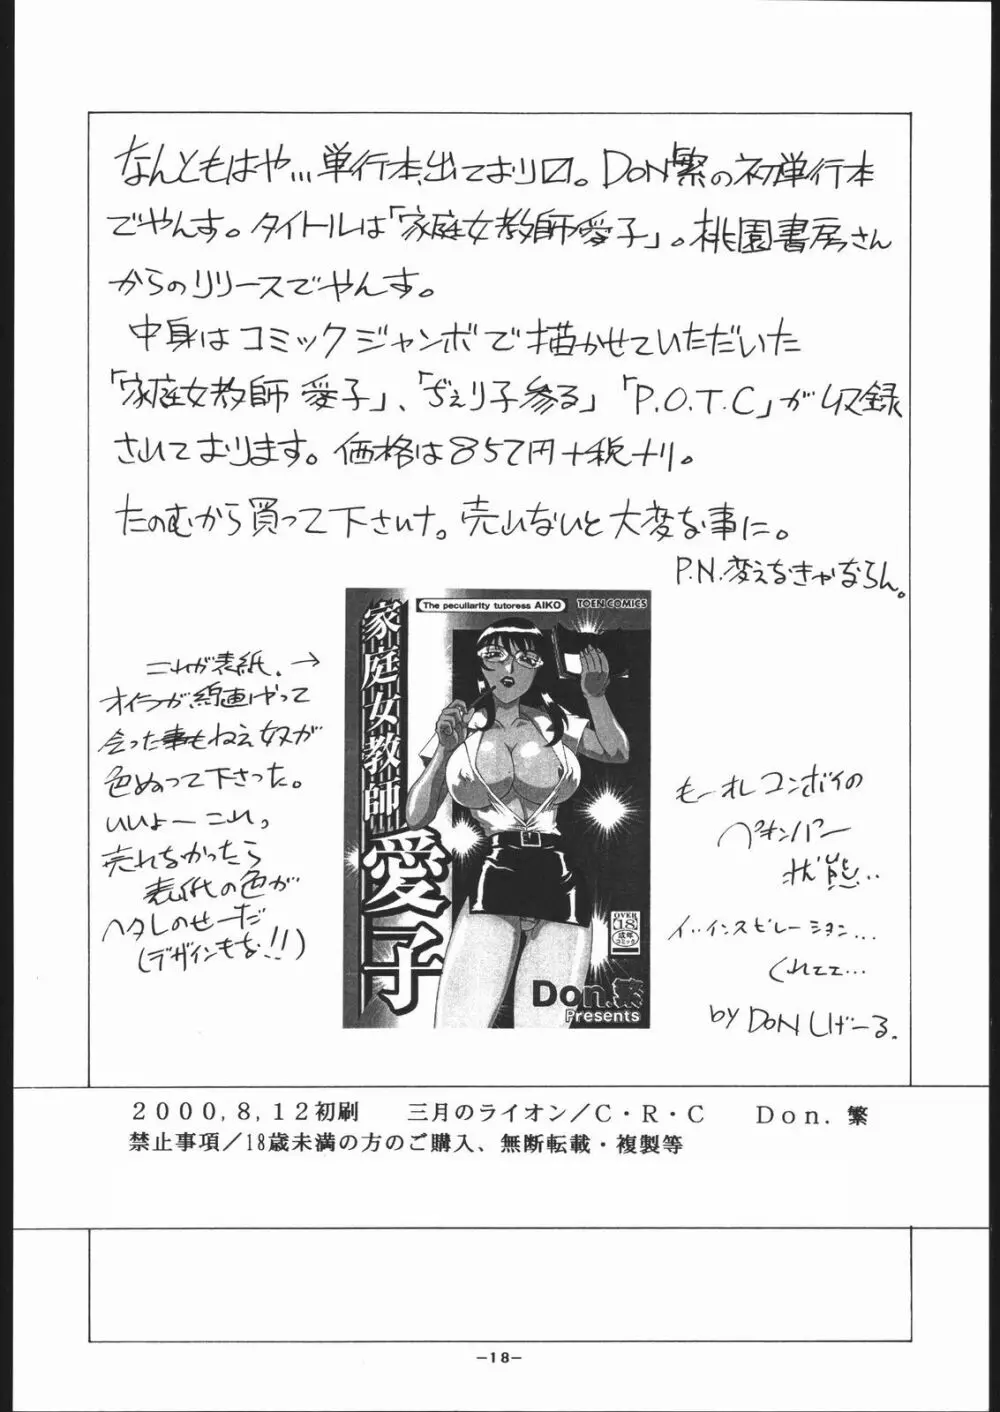 なんともはや…単行本、出ており〼。DON繁の初単行本
でやんす。タイトルは「家庭女教師愛子」。桃園書房さん
からのリリースでやんす。
中身はコミックジャンボで描かせていただいた
「家庭女教師 愛子」、「ぢぇり子参る」「P.O.T.C」が収録
されております。価格は857円+税+リ。
たのむから買って下さいナ。売れないと大変な事に。
P.N.変えなきゃならん。
これが表紙。→
オイラが線画はやって
会った事もねえ奴が
色ぬって下さった。
いいよーこれっ
売れなかったら
表紙の色が
ヘタレのせーだ
(デザインもな!!)
The peculiarity tutoress AIKO
TOEN COMICS
家庭女教師
愛子
OVER
18
成年
コミック
Don.繁
Presents
もーオレコンボイの
ペキンパー
状態…
イ、インスピレーション…
くれェェ…
by DONしげーる.
2000,8,12初刷 三月のライオン/C・R・C Don. 繁
禁止事項/18歳未満の方のご購入、無断転載・複製等
-18-